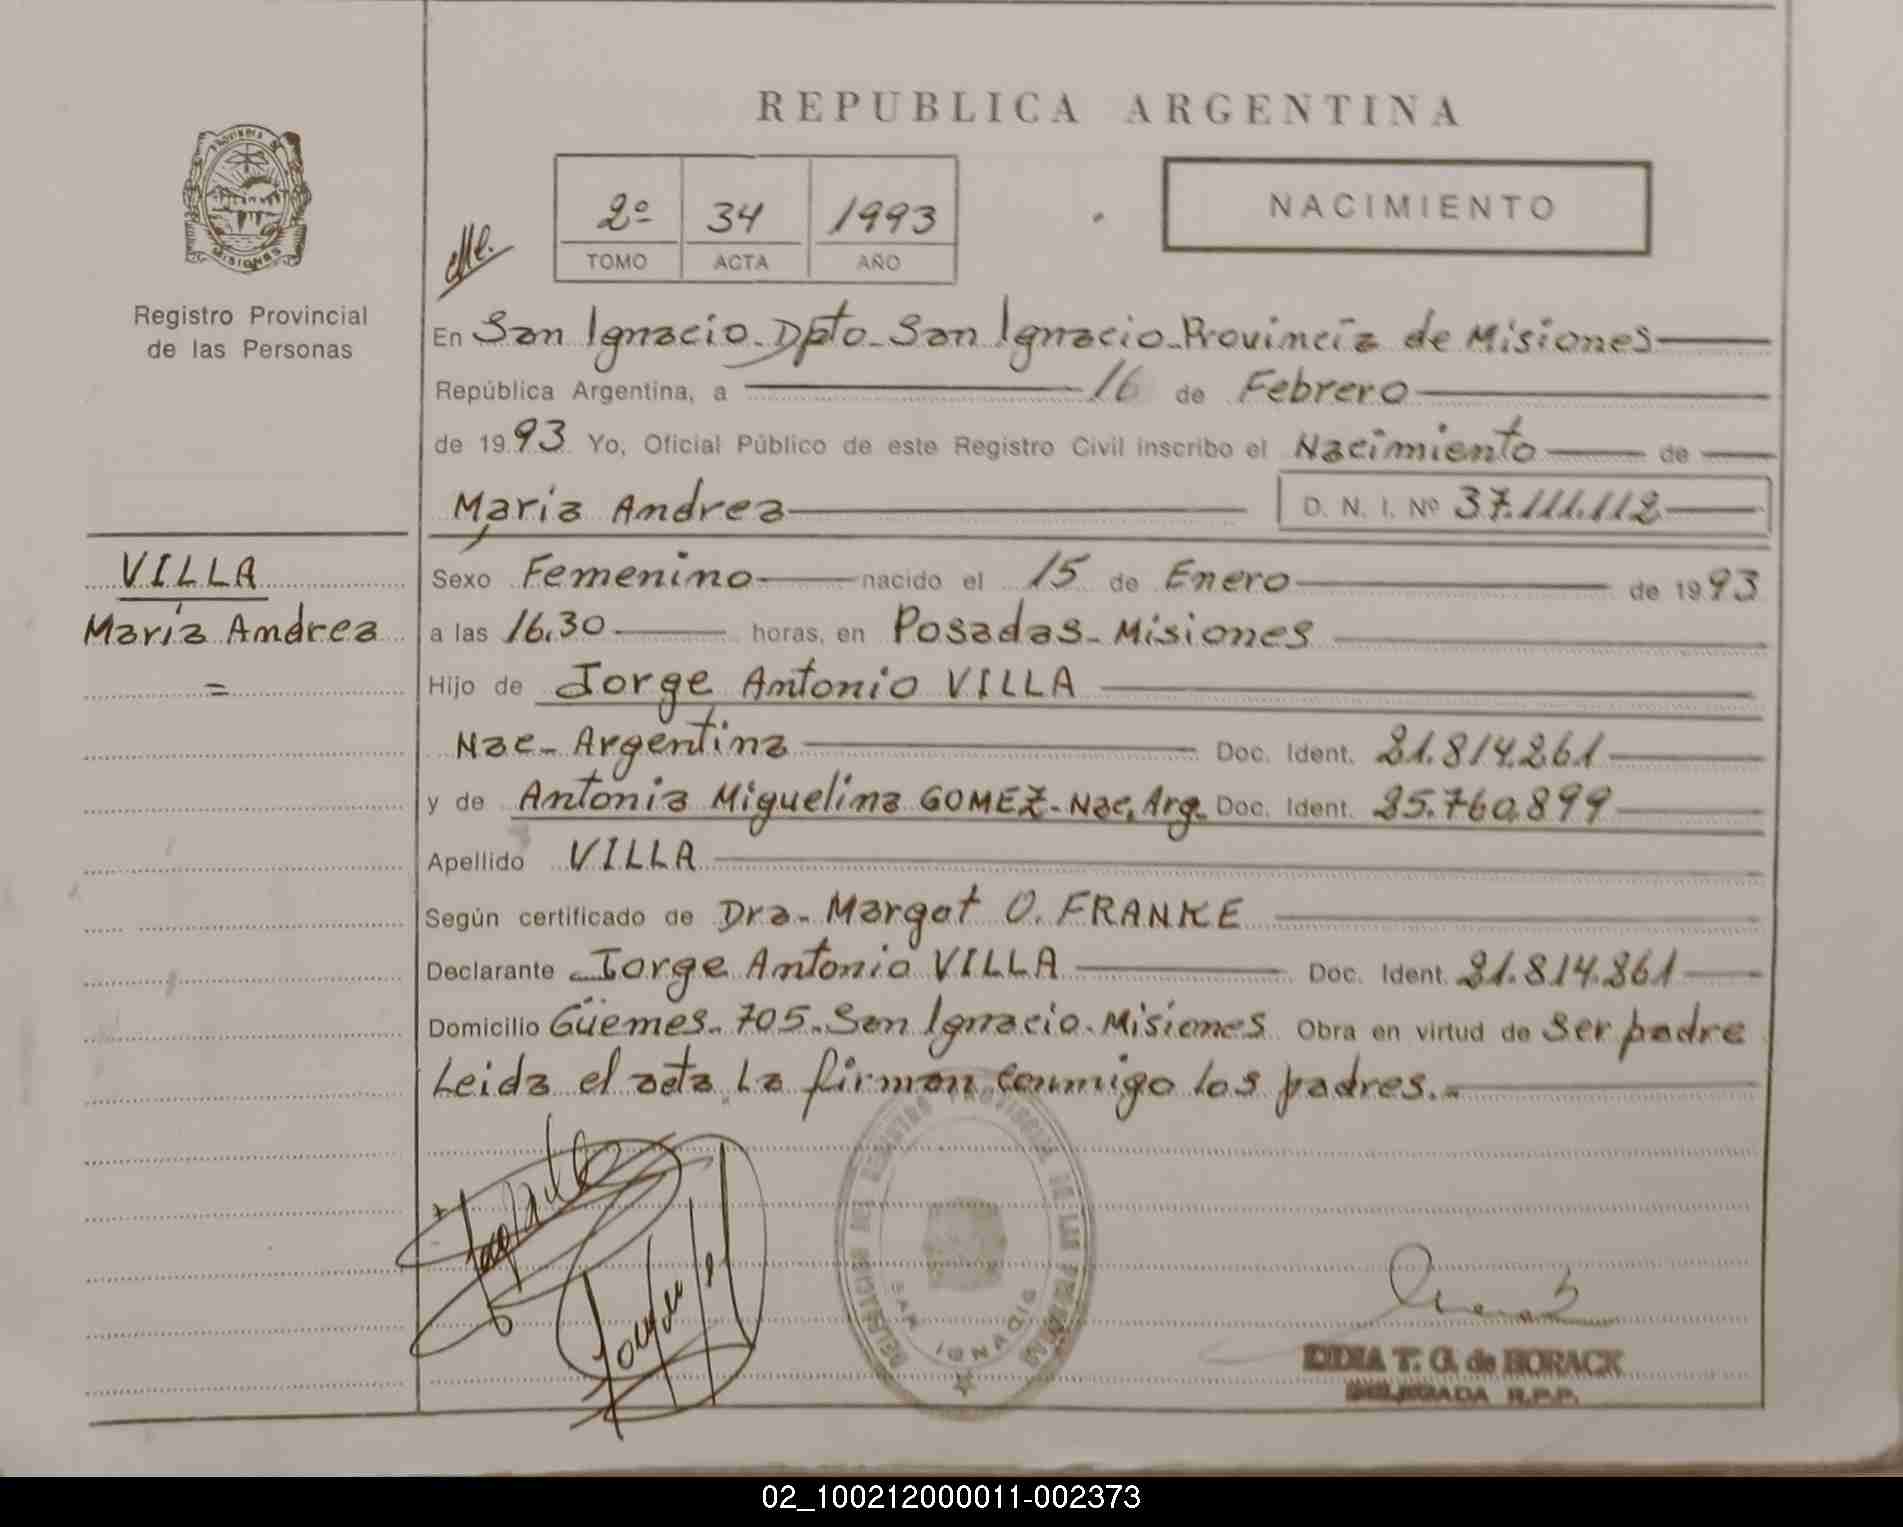 REPUBLICA ARGENTINA
PROVINCIA DE
MISIONES
Registro Provincial
de las Personas
2º 34 1993
TOMO ACTA AÑO
NACIMIENTO
En San Ignacio - Dpto - San Ignacio - Provincia de Misiones
República Argentina, a 16 de Febrero
de 1993 Yo, Oficial Público de este Registro Civil inscribo el Nacimiento de
María Andrea D. N. I. Nº 37.111.112
VILLA
María Andrea
=
Sexo Femenino nacido el 15 de Enero de 1993
a las 16,30 horas, en Posadas - Misiones
Hijo de Jorge Antonio VILLA
Nac - Argentina Doc. Ident. 21.814.261
y de Antonia Miguelina GOMEZ - Nac, Arg. Doc. Ident. 25.760.899
Apellido VILLA
Según certificado de Dra - Margot O. FRANKE
Declarante Jorge Antonio VILLA Doc. Ident. 21.814.261
Domicilio Güemes - 705 - San Ignacio - Misiones Obra en virtud de ser padre
Leida el acta La firman conmigo los padres. -
DELEGACION DEL REGISTRO PROVINCIAL DE LAS PERSONAS
SAN IGNACIO
T. G. de HORACK
DELEGADA R.P.P.
02_100212000011-002373